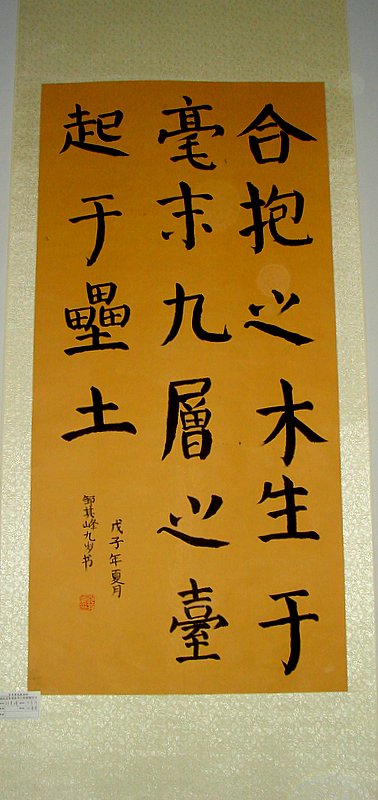 合抱之木生于
毫末九層之臺
起于壘土
戊子年夏月
邹其峰九岁书